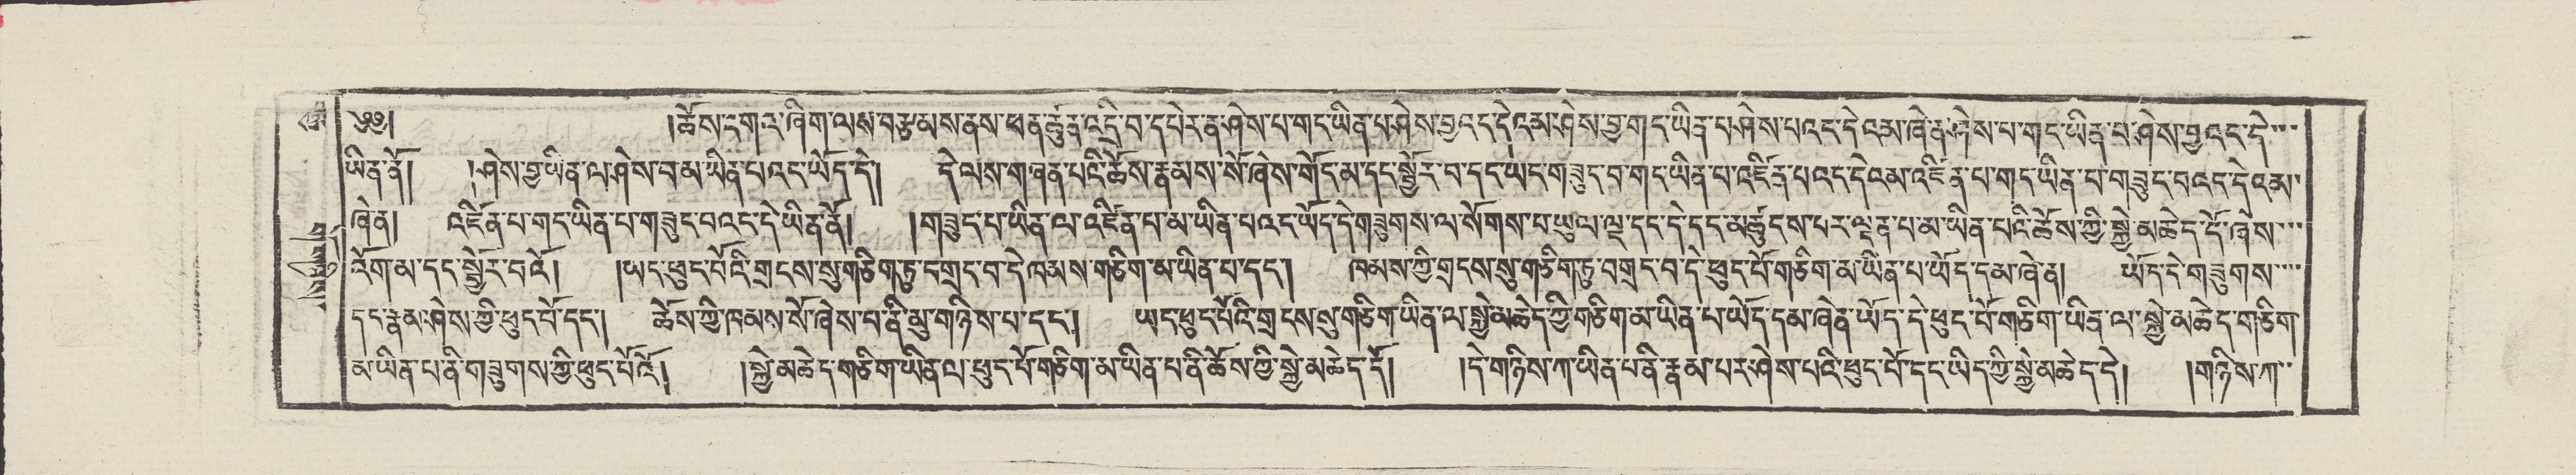 ༄༅། །ཆོས་དགར་ཞིག་ལས་བརྩམས་ནས་ཕན་ཚུན་འདྲི་བ་དཔེར་ན་ཤེས་པ་གང་ཡིན་པ་ཤེས་བྱའང་དེའམ་ཤེས་བྱ་གང་ཡིན་པ་ཤེས་པའང་དེའམ་ཞེ་ན་ཤེས་པ་གང་ཡིན་པ་ཤེས་བྱའང་དེ་
ཡིན་ནོ། །ཤེས་བྱ་ཡིན་ལ་ཤེས་པ་མ་ཡིན་པའང་ཡོད་དེ། དེ་ལས་གཞན་པའི་ཆོས་རྣམས་སོ་ཞེས་གོད་མ་དང་སྦྱོར་བ་དང་ཡང་གཟུང་བ་གང་ཡིན་པ་འཛིན་པའང་དེའམ་འཛིན་པ་གང་ཡིན་པ་གཟུང་བའང་དེའམ་
ཞེ་ན། འཛིན་པ་གང་ཡིན་པ་གཟུང་བའང་དེ་ཡིན་ནོ། །གཟུང་བ་ཡིན་ལ་འཛིན་པ་མ་ཡིན་པའང་ཡོད་དེ་གཟུགས་ལ་སོགས་པ་ཡུལ་ལྔ་དང་དེ་དང་མཚུངས་པར་ལྡན་པ་མ་ཡིན་པའི་ཆོས་ཀྱི་སྐྱེ་མཆེད་དོ་ཞེས་
འོག་མ་དང་སྦྱོར་བའོ། །ཡང་ཕུང་པོའི་གྲངས་སུ་གཅིག་ཏུ་བགྲང་བ་དེ་ཁམས་གཅིག་མ་ཡིན་པ་དང་། ཁམས་ཀྱི་གྲངས་སུ་གཅིག་ཏུ་བགྲང་བ་དེ་ཕུང་པོ་གཅིག་མ་ཡིན་པ་ཡོད་དམ་ཞེ་ན། ཡོད་དེ་གཟུགས་
དང་རྣམ་ཤེས་ཀྱི་ཕུང་པོ་དང་། ཆོས་ཀྱི་ཁམས་སོ་ཞེས་པ་ནི་མུ་གཉིས་པ་དང་། ཡང་ཕུང་པོའི་གྲངས་སུ་གཅིག་ཡིན་ལ་སྐྱེ་མཆེད་ཀྱི་གཅིག་མ་ཡིན་པ་ཡོད་དམ་ཞེ་ན་ཡོད་དེ་ཕུང་པོ་གཅིག་ཡིན་ལ་སྐྱེ་མཆེད་གཅིག་
མ་ཡིན་པ་ནི་གཟུགས་ཀྱི་ཕུང་པོའོ། །སྐྱེ་མཆེད་གཅིག་ཡིན་ལ་ཕུང་པོ་གཅིག་མ་ཡིན་པ་ནི་ཆོས་ཀྱི་སྐྱེ་མཆེད་དོ། །དེ་གཉིས་ཀ་ཡིན་པ་ནི་རྣམ་པར་ཤེས་པའི་ཕུང་པོ་དང་ཡིད་ཀྱི་སྐྱེ་མཆེད་དེ། །གཉིས་ཀ་